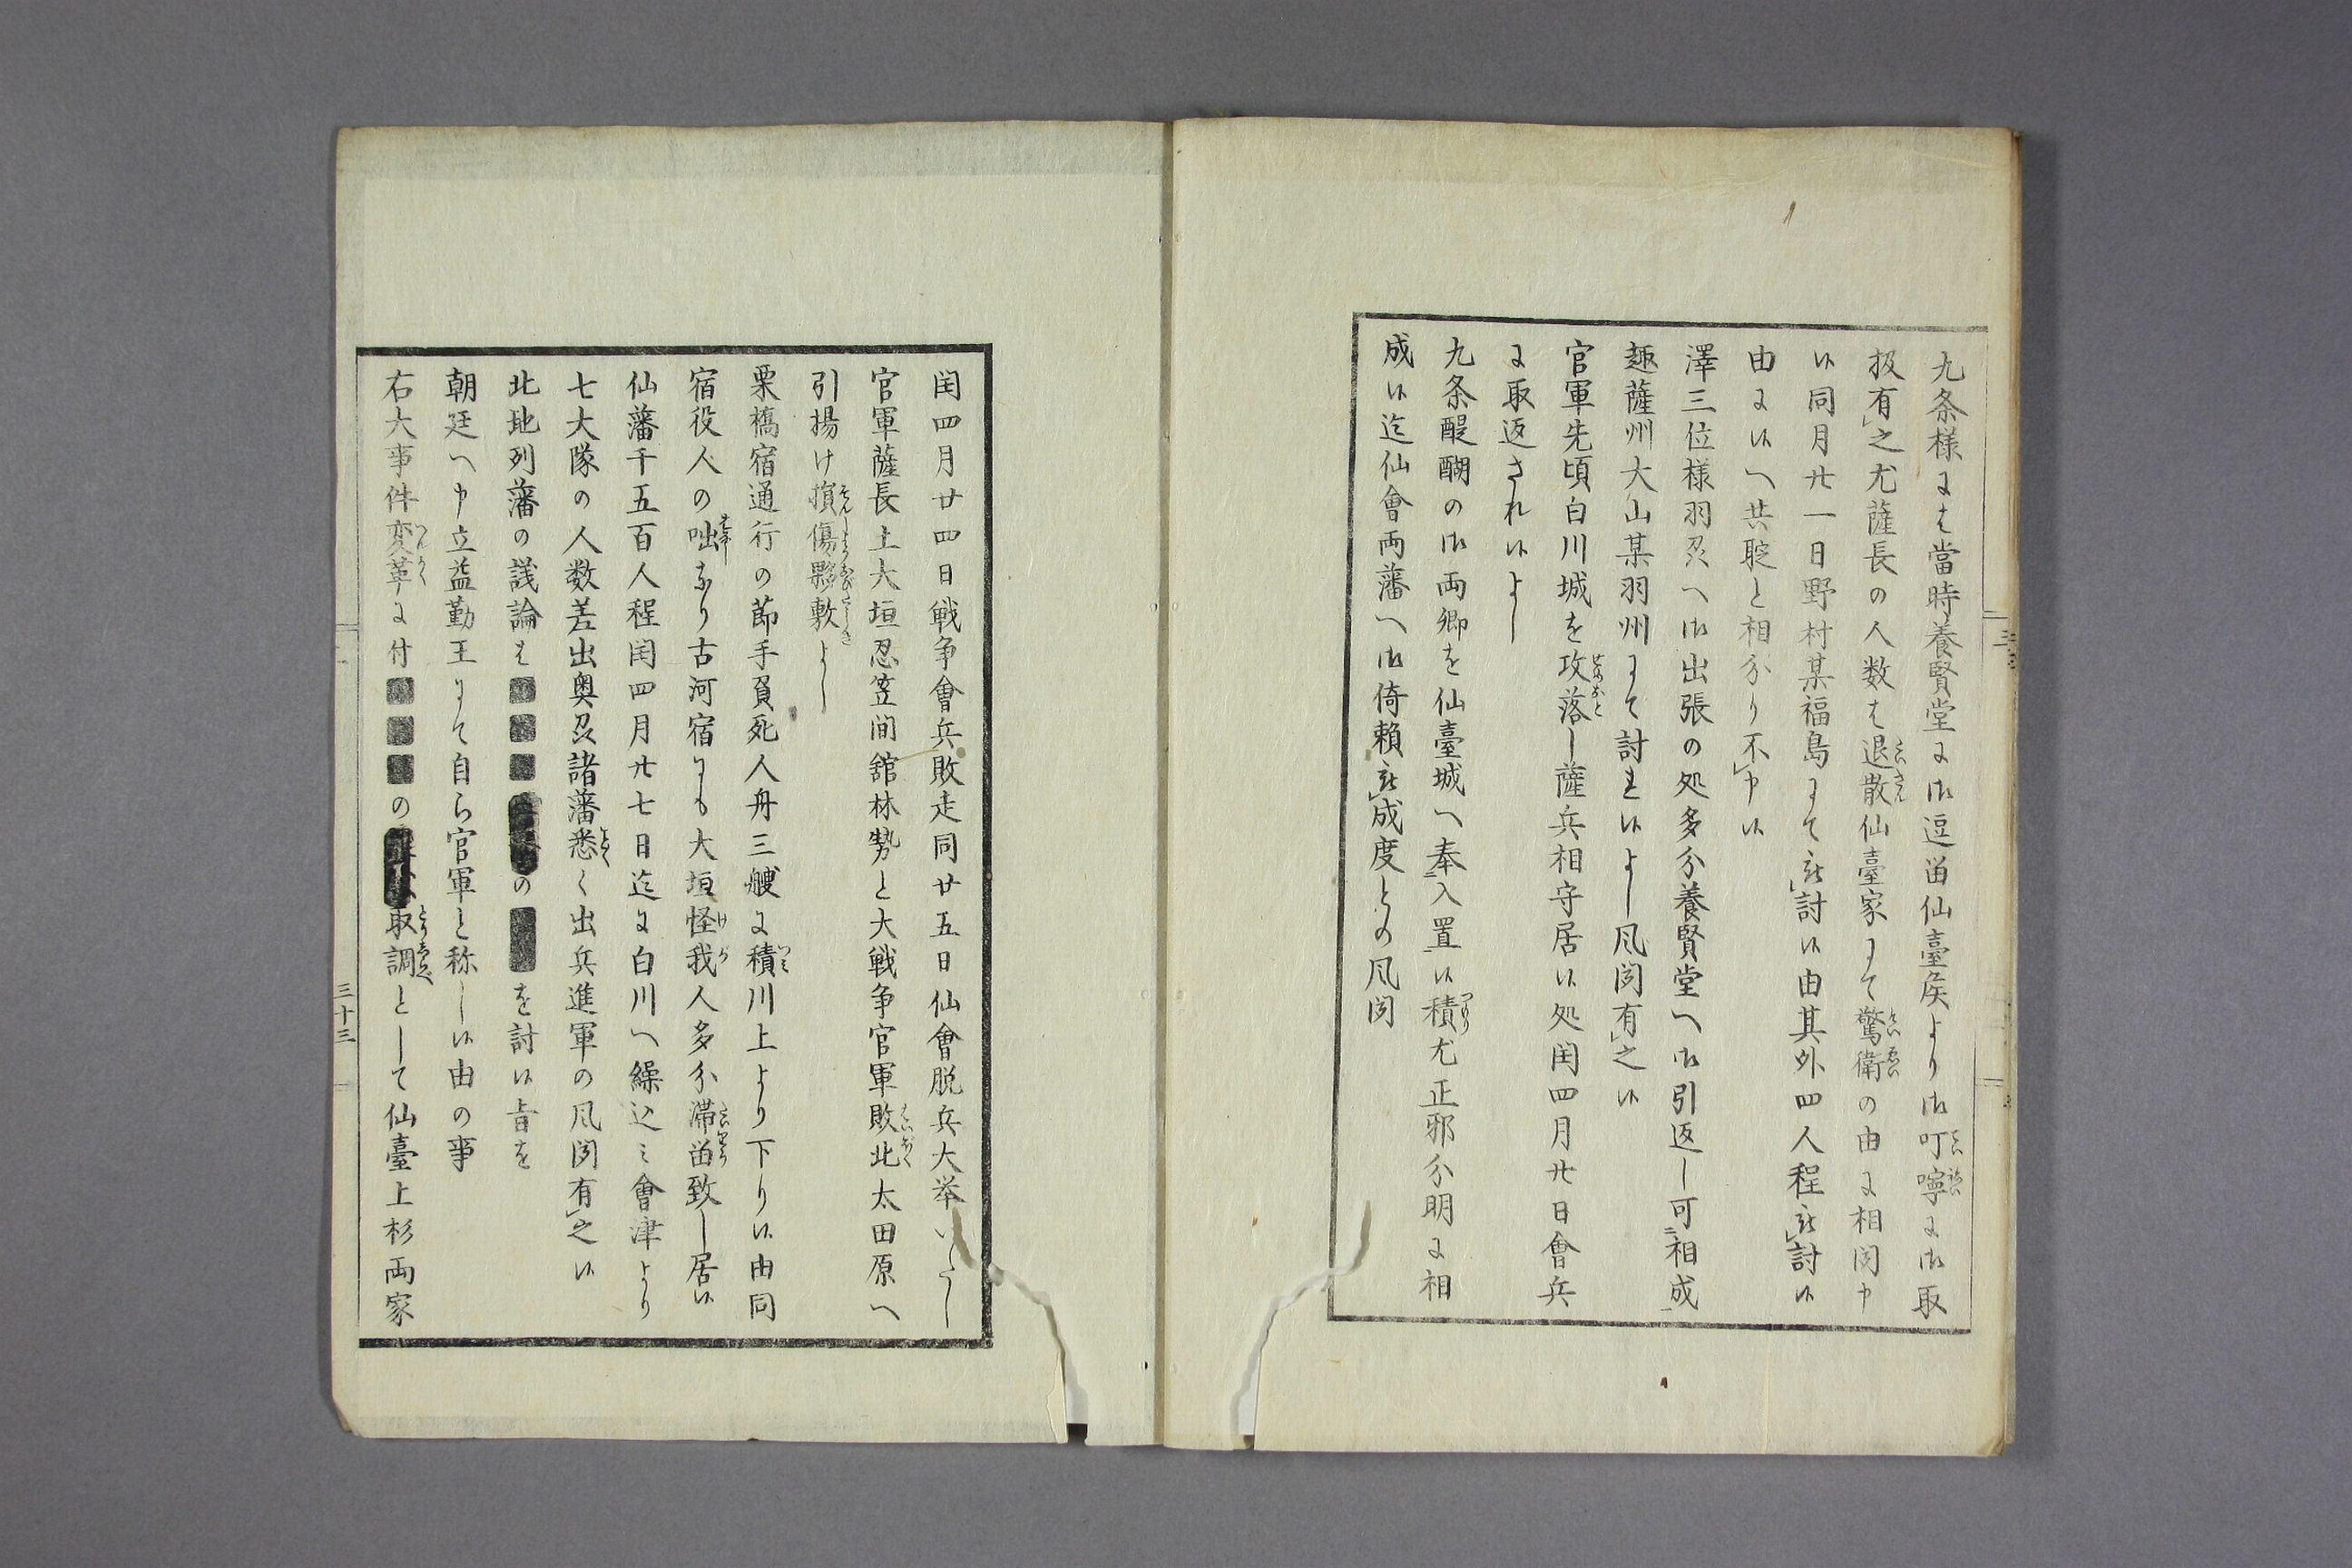 九条様ニハ當時養賢堂ニ御逗留仙臺矦より御叮嚀ニ御取
扱有之尤薩長の人数ハ退散仙臺家ニて驚衛の由ニ相聞申
候同月廿一日野村某福島ニて被討候由其外四人程被討候
由ニ候へ共聢と相分り不申候
澤三位様羽刕へ御出張の処多分養賢堂へ御引返し可相成
趣薩州大山某羽州ニて討れ候よし風聞有之候
官軍先頃白川城を攻落し薩兵相守居候処閏四月廿日會兵
ニ取返され候よし
九条醍醐の御両卿を仙臺城へ奉入置候積尤正邪分明ニ相
成候迄仙會両藩へ御倚頼被成度との風聞
閏四月廿四日戦争會兵敗走同廿五日仙會脱兵大挙いたし
官軍薩長土大垣忍笠间舘林勢と大戦争官軍敗北太田原へ
引揚け損傷夥敷よし
栗橋宿通行の節手負死人舟三艘ニ積川上より下り候由同
宿役人の咄なり古河宿ニも大垣怪我人多分滞留致し居候
仙藩千五百人程閏四月廿七日迄ニ白川へ繰込ミ會津より
七大隊の人数差出奥刕諸藩悉く出兵進軍の風聞有之候
北地列藩の議論ハ■■■の を討候旨を
朝廷へ申立益勤王ニて自ら官軍と称し候由の事
右大事件変革ニ付■■■の 取調として仙臺上杉両家
三十三